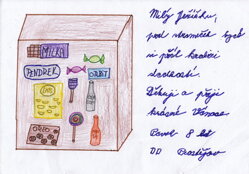 MILKA
PENDREK
ORBIT
Milý Ježíšku,
pod stromeček bych
si přál krabici
sladkostí.
Děkuji a přeji
krásné Vánoce
Pavel 8 let
DD Prostějov